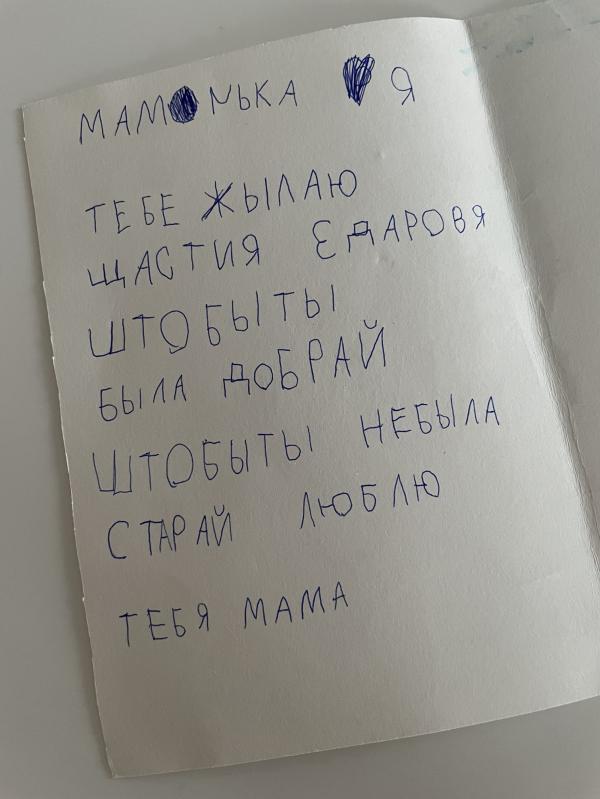 МАМОЧЬКА Я
ТЕБЕ ЖЫЛАЮ
ЩАСТИЯ ЗДАРОВЯ
ШТОБЫТЫ
БЫЛА ДОБРАЙ
ШТОБЫТЫ НЕБЫЛА
СТАРАЙ ЛЮБЛЮ
ТЕБЯ МАМА